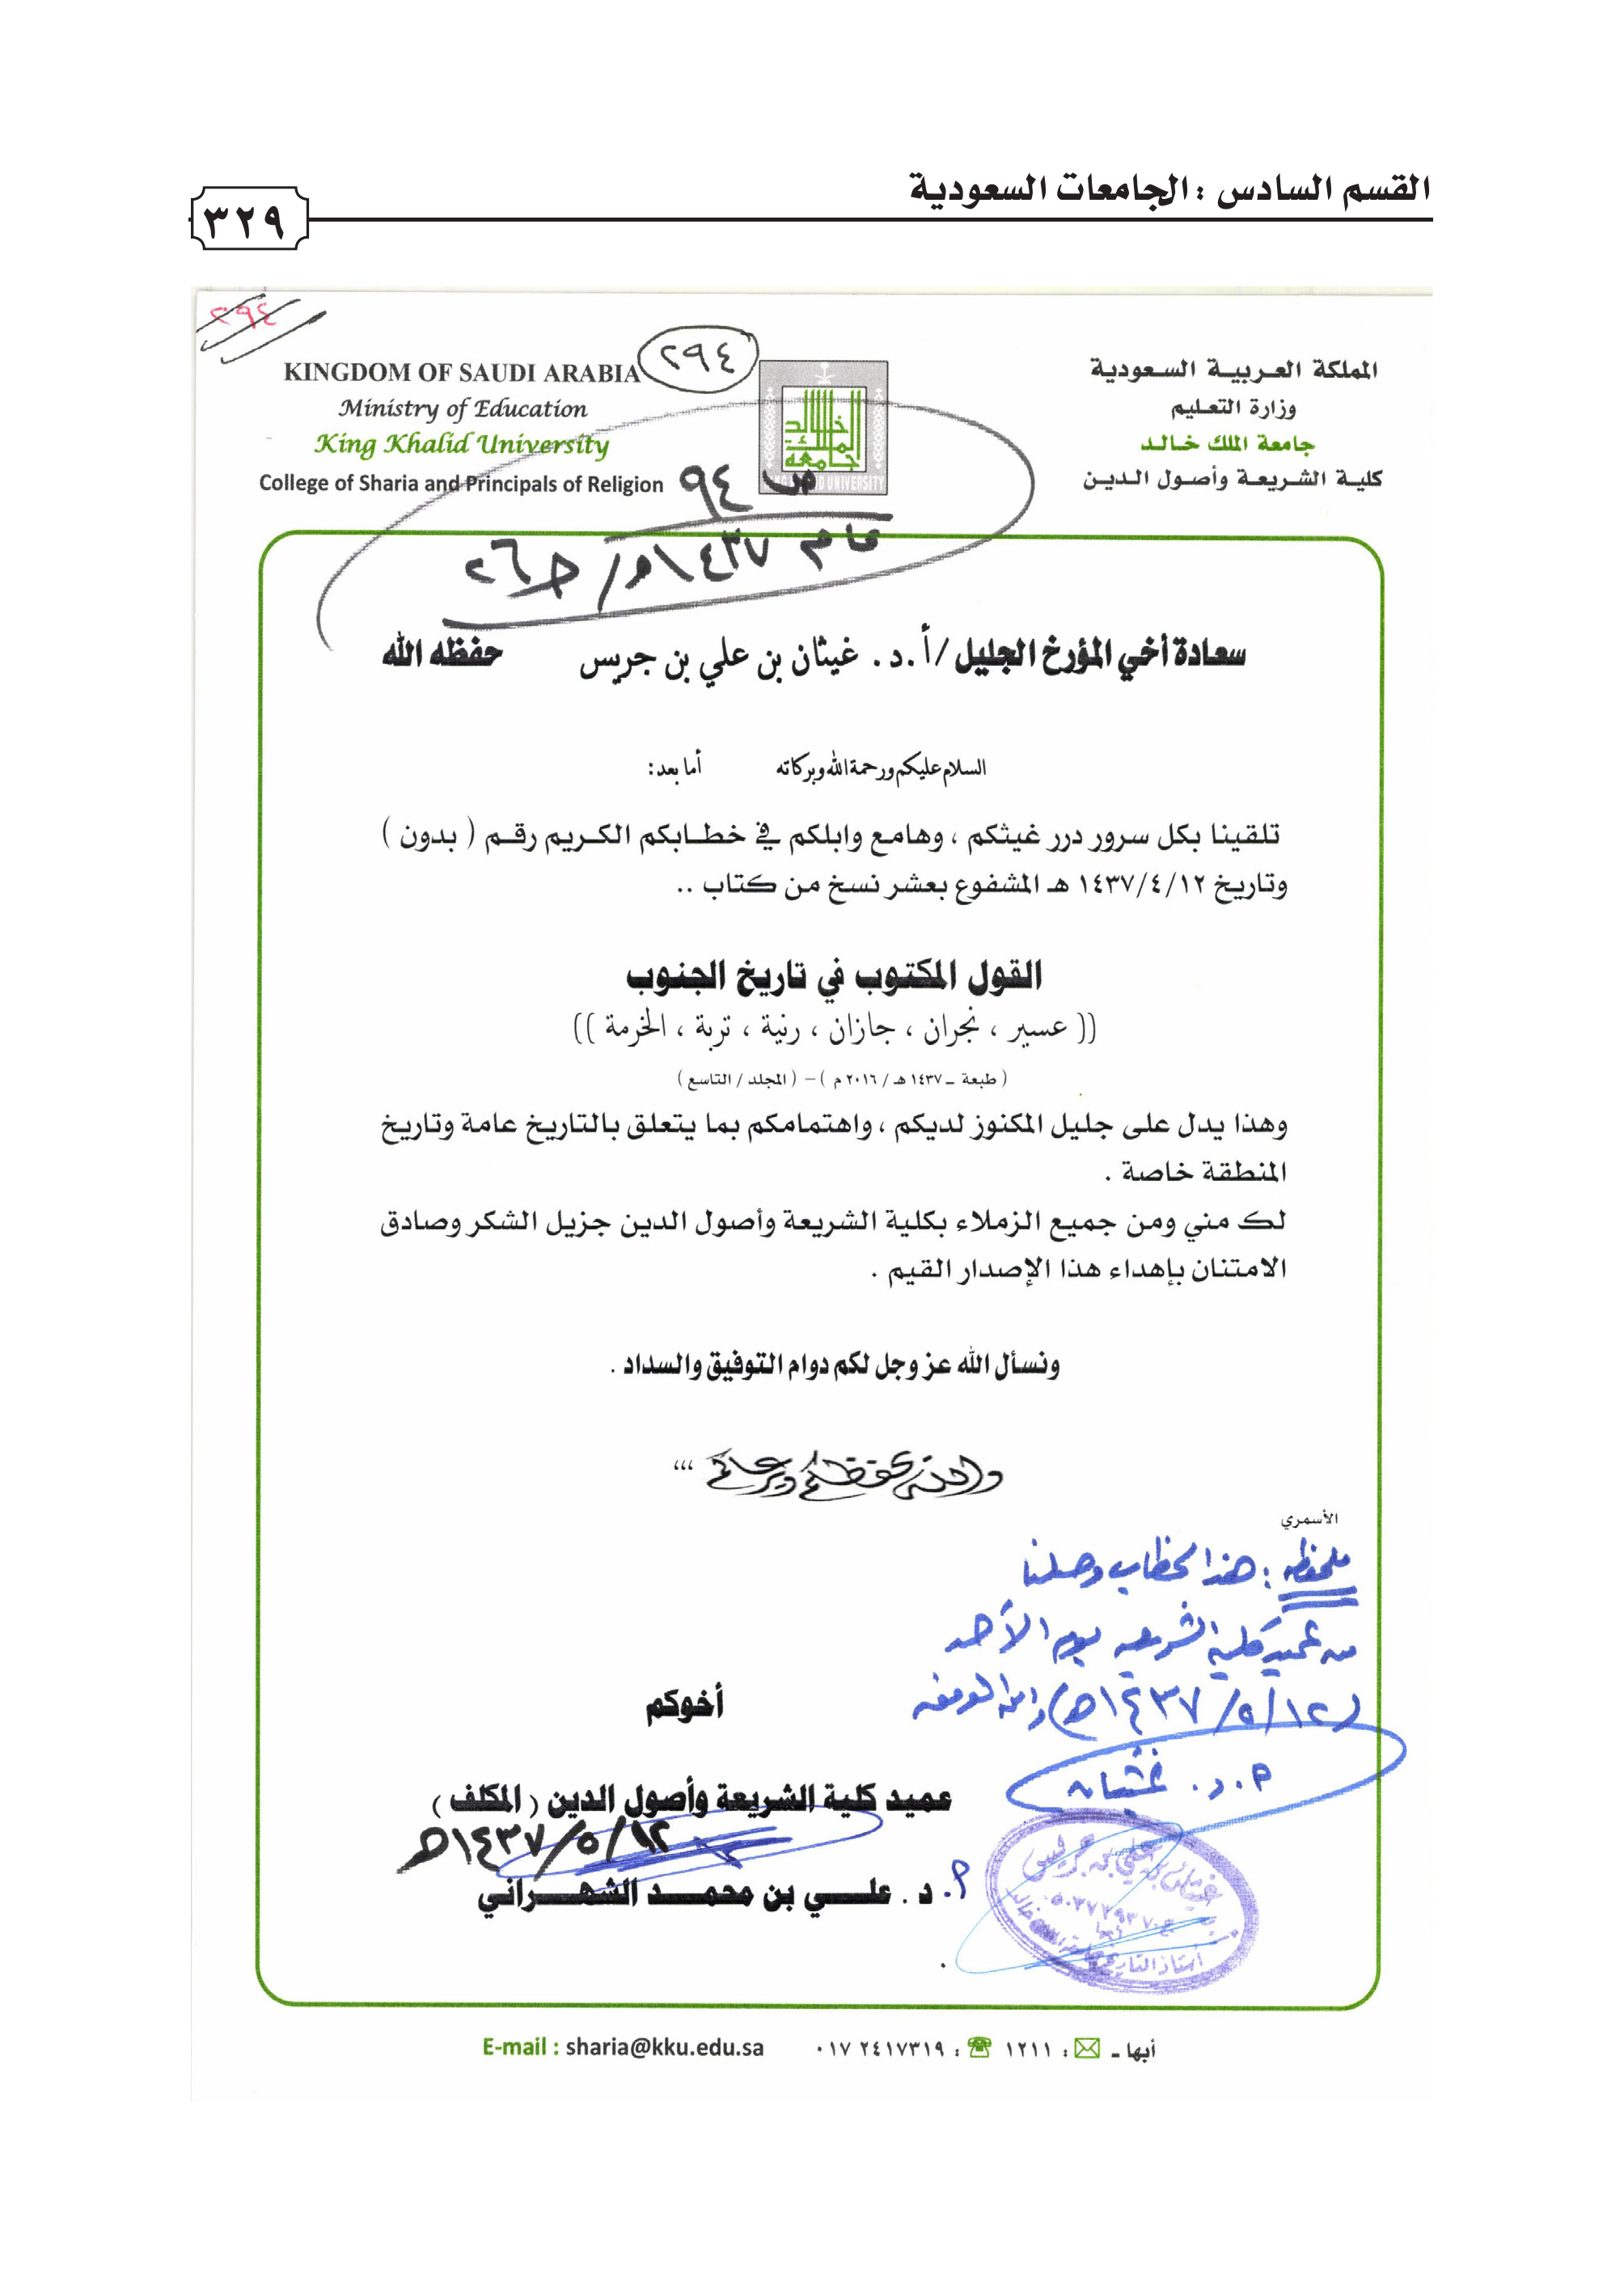 القسم السادس : الجامعات السعودية
٣٢٩
٢٩٤
٢٩٤
KINGDOM OF SAUDI ARABIA
Ministry of Education
King Khalid University
College of Sharia and Principals of Religion
المملكة العربية السعودية
وزارة التعليم
جامعة الملك خالد
كلية الشريعة وأصول الدين
ص ٩٤
عام ١٤٣٧هـ / ج٢٦
سعادة أخي المؤرخ الجليل / أ.د. غيثان بن علي بن جريس حفظه الله
السلام عليكم ورحمة الله وبركاته أما بعد:
تلقينا بكل سرور درر غيثكم ، وهامع وابلكم في خطابكم الكريم رقم ( بدون )
وتاريخ ١٤٣٧/٤/١٢ هـ المشفوع بعشر نسخ من كتاب ..
القول المكتوب في تاريخ الجنوب
(( عسير ، نجران ، جازان ، رنية ، تربة ، الخرمة ))
( طبعة ـ ١٤٣٧ هـ / ٢٠١٦ م ) – ( المجلد / التاسع )
وهذا يدل على جليل المكنوز لديكم ، واهتمامكم بما يتعلق بالتاريخ عامة وتاريخ
المنطقة خاصة .
لك مني ومن جميع الزملاء بكلية الشريعة وأصول الدين جزيل الشكر وصادق
الامتنان بإهداء هذا الإصدار القيم .
ونسأل الله عز وجل لكم دوام التوفيق والسداد .
والله يحفظكم ويرعاكم ،،،
الأسمري
ملحظه : هذا الخطاب وصلنا
من عميد كلية الشريعه يوم الأحد
(١٢/٥/١٤٣٧هـ) والله الموفق
أ.د. غيثان
أخوكم
عميد كلية الشريعة وأصول الدين ( المكلف )
١٢/٥/١٤٣٧هـ
أ. د . علي بن محمد الشهراني
غيثان بن علي بن جريس
أستاذ التاريخ
أبها ـ : ١٢١١ : ٠١٧ ٢٤١٧٣١٩ E-mail : sharia@kku.edu.sa